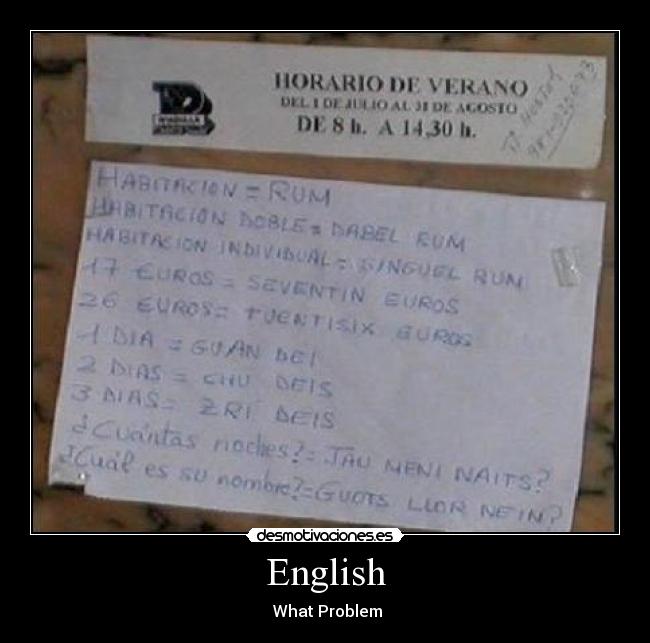 HORARIO DE VERANO
DEL 1 DE JULIO AL 31 DE AGOSTO
DE 8 h. A 14,30 h.
HABITACION = RUM
HABITACION DOBLE = DABEL RUM
HABITACION INDIVIDUAL = SINGUEL RUM
17 EUROS = SEVENTIN EUROS
26 EUROS = TUENTISIX EUROS
1 DIA = GUAN DEI
2 DIAS = CHU DEIS
3 DIAS = ZRI DEIS
¿Cuántas noches? = JAU MENI NAITS?
¿Cuál es su nombre? = GUOTS LLOR NEIN?
desmotivaciones.es
English
What Problem